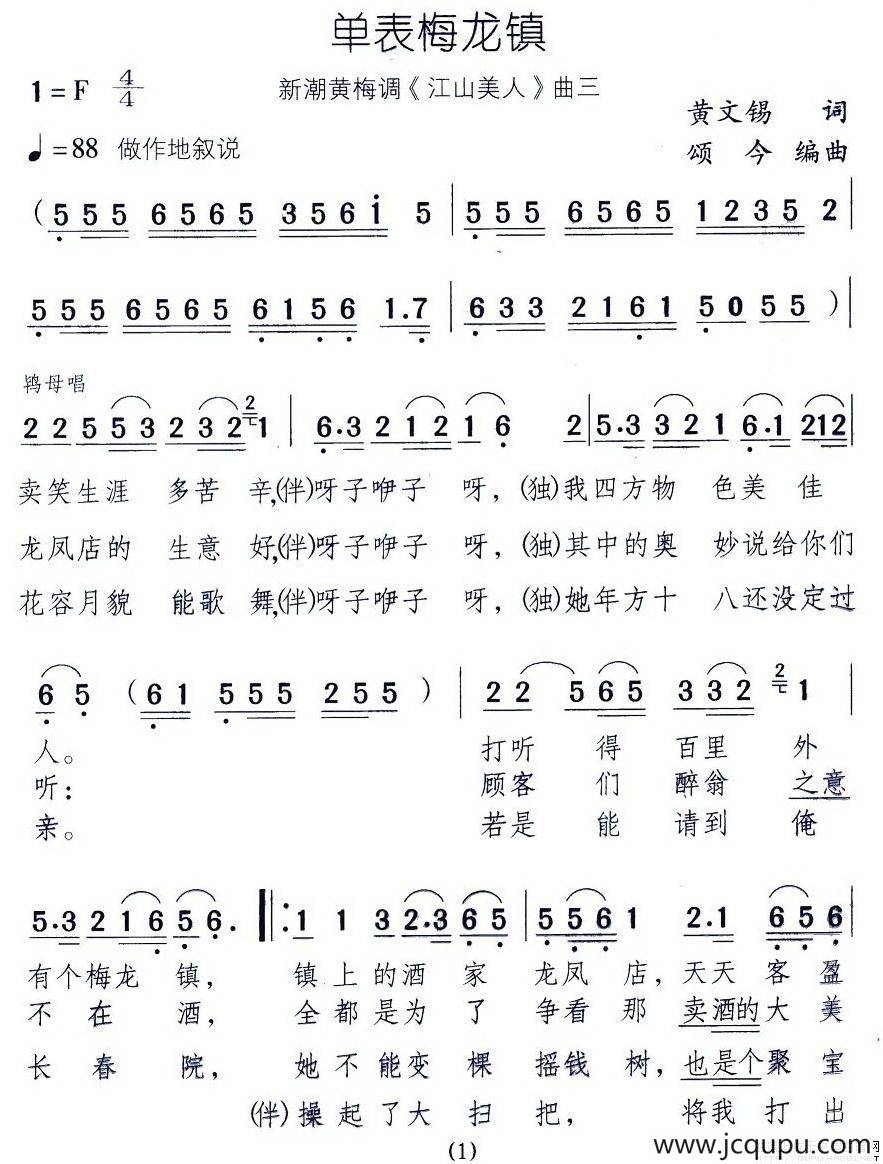 单表梅龙镇
1=F 4/4
新潮黄梅调《江山美人》曲三
黄文锡 词
♩=88 做作地叙说
颂今 编曲
(5 5 5 6 5 6 5 3 5 6 i 5 | 5 5 5 6 5 6 5 1 2 3 5 2 |
5 5 5 6 5 6 5 6 1 5 6 1.7 | 6 3 3 2 1 6 1 5 0 5 5 )|
鸨母唱
2 2 5 5 3 2 3 2 2 1 | 6.3 2 1 2 1 6 2 | 5.3 3 2 1 6.1 212 |
卖笑生涯 多苦 辛,(伴)呀子咿子 呀,(独)我四方物 色美 佳
龙凤店的 生意 好,(伴)呀子咿子 呀,(独)其中的奥 妙说给你们
花容月貌 能歌 舞,(伴)呀子咿子 呀,(独)她年方十 八还没定过
6 5 (6 1 5 5 5 2 5 5 ) | 2 2 5 6 5 3 3 2 2 1 |
人。 打听 得 百里 外
听: 顾客 们 醉翁 之意
亲。 若是 能 请到 俺
5.3 2 1 6 5 6. ‖: 1 1 3 2.3 6 5 | 5 5 6 1 2.1 6 5 6 |
有个梅龙 镇, 镇上的酒 家 龙凤 店,天天 客盈
不 在 酒, 全都是为 了 争看 那 卖酒的大 美
长 春 院, 她不能变 棵 摇钱 树,也是个聚 宝
(伴)操起了大 扫 把, 将我 打 出
(1)
www.jcqupu.com